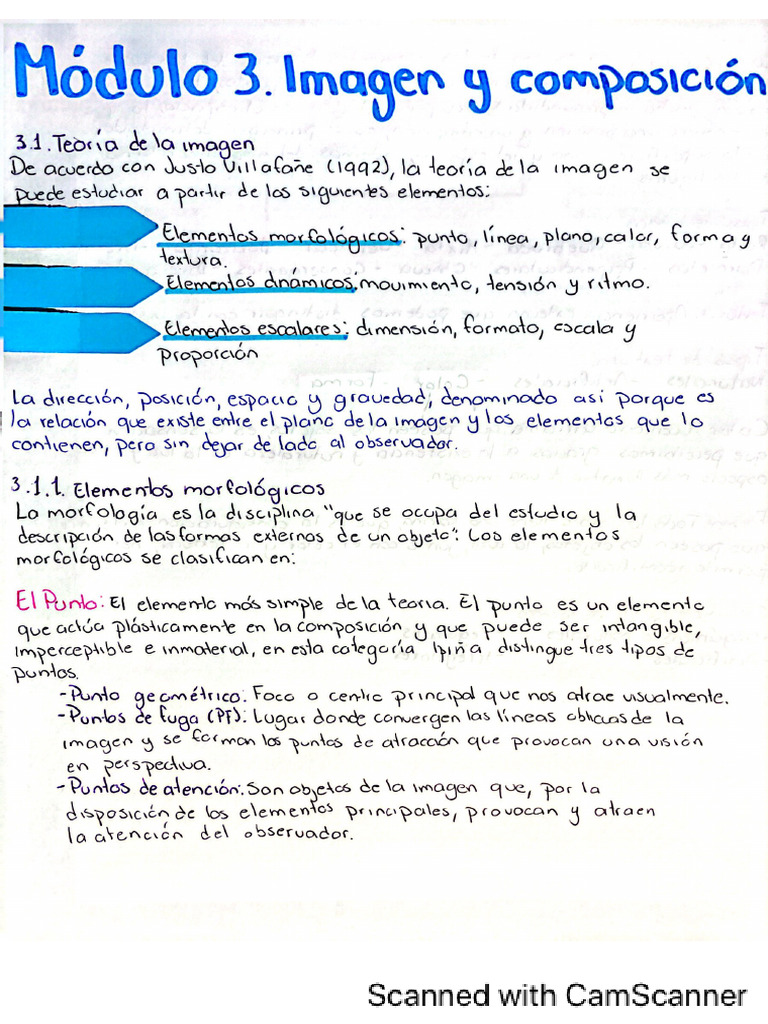 Módulo 3. Imagen y composición
3.1. Teoría de la imagen
De acuerdo con Justo Villafañe (1992), la teoría de la imagen se
puede estudiar a partir de los siguientes elementos:
Elementos morfológicos: punto, línea, plano, color, forma y
textura.
Elementos dinámicos: movimiento, tensión y ritmo.
Elementos escalares: dimensión, formato, escala y
proporción
La dirección, posición, espacio y gravedad, denominado así porque es
la relación que existe entre el plano de la imagen y los elementos que lo
contienen, pero sin dejar de lado al observador.
3.1.1. Elementos morfológicos
La morfología es la disciplina "que se ocupa del estudio y la
descripción de las formas externas de un objeto". Los elementos
morfológicos se clasifican en:
El Punto: El elemento más simple de la teoría. El punto es un elemento
que actúa plásticamente en la composición y que puede ser intangible,
imperceptible e inmaterial, en esta categoría Ipiña distingue tres tipos de
puntos.
-Punto geométrico: Foco o centro principal que nos atrae visualmente.
-Puntos de fuga (PF): Lugar donde convergen las líneas oblicuas de la
imagen y se forman los puntos de atracción que provocan una visión
en perspectiva.
-Puntos de atención: Son objetos de la imagen que, por la
disposición de los elementos principales, provocan y atraen
la atención del observador.
Scanned with CamScanner